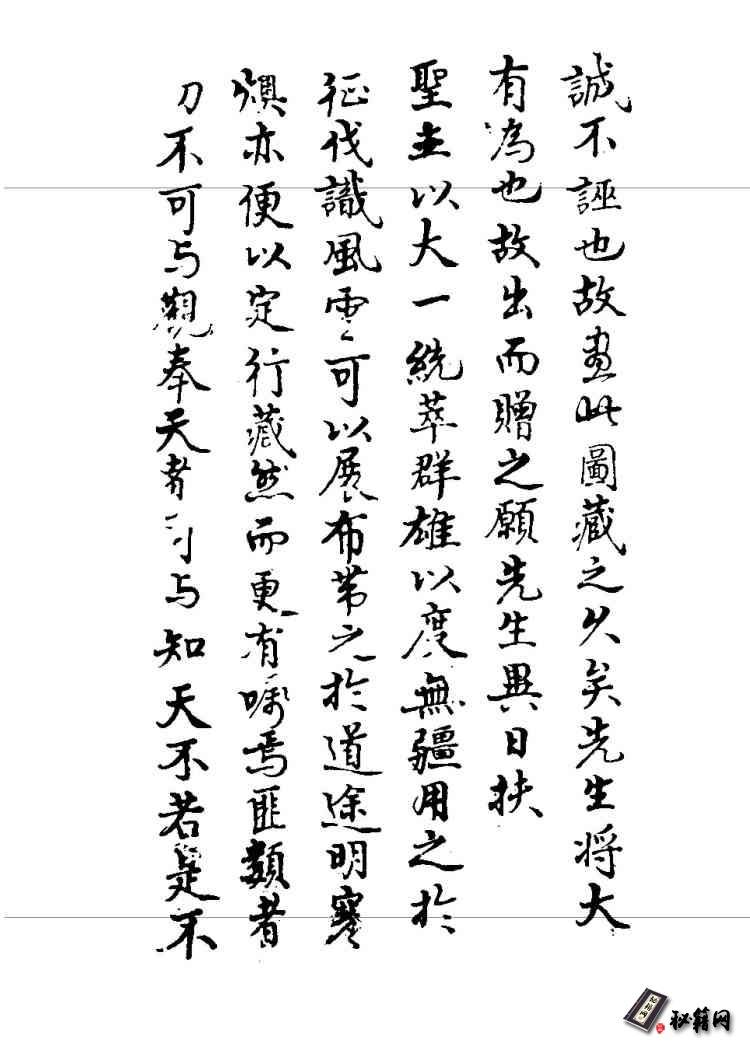 誠不誣也故畫此圖藏之久矣先生将大
有為也故出而贈之願先生異日扶
聖主以大一統萃群雄以度無疆用之於
征伐識風雲可以展布帶之於道途明寒
燠亦便以定行藏然而更有嘱焉匪類者
刀不可与觀奉天者可与知天不若是不
秘籍网